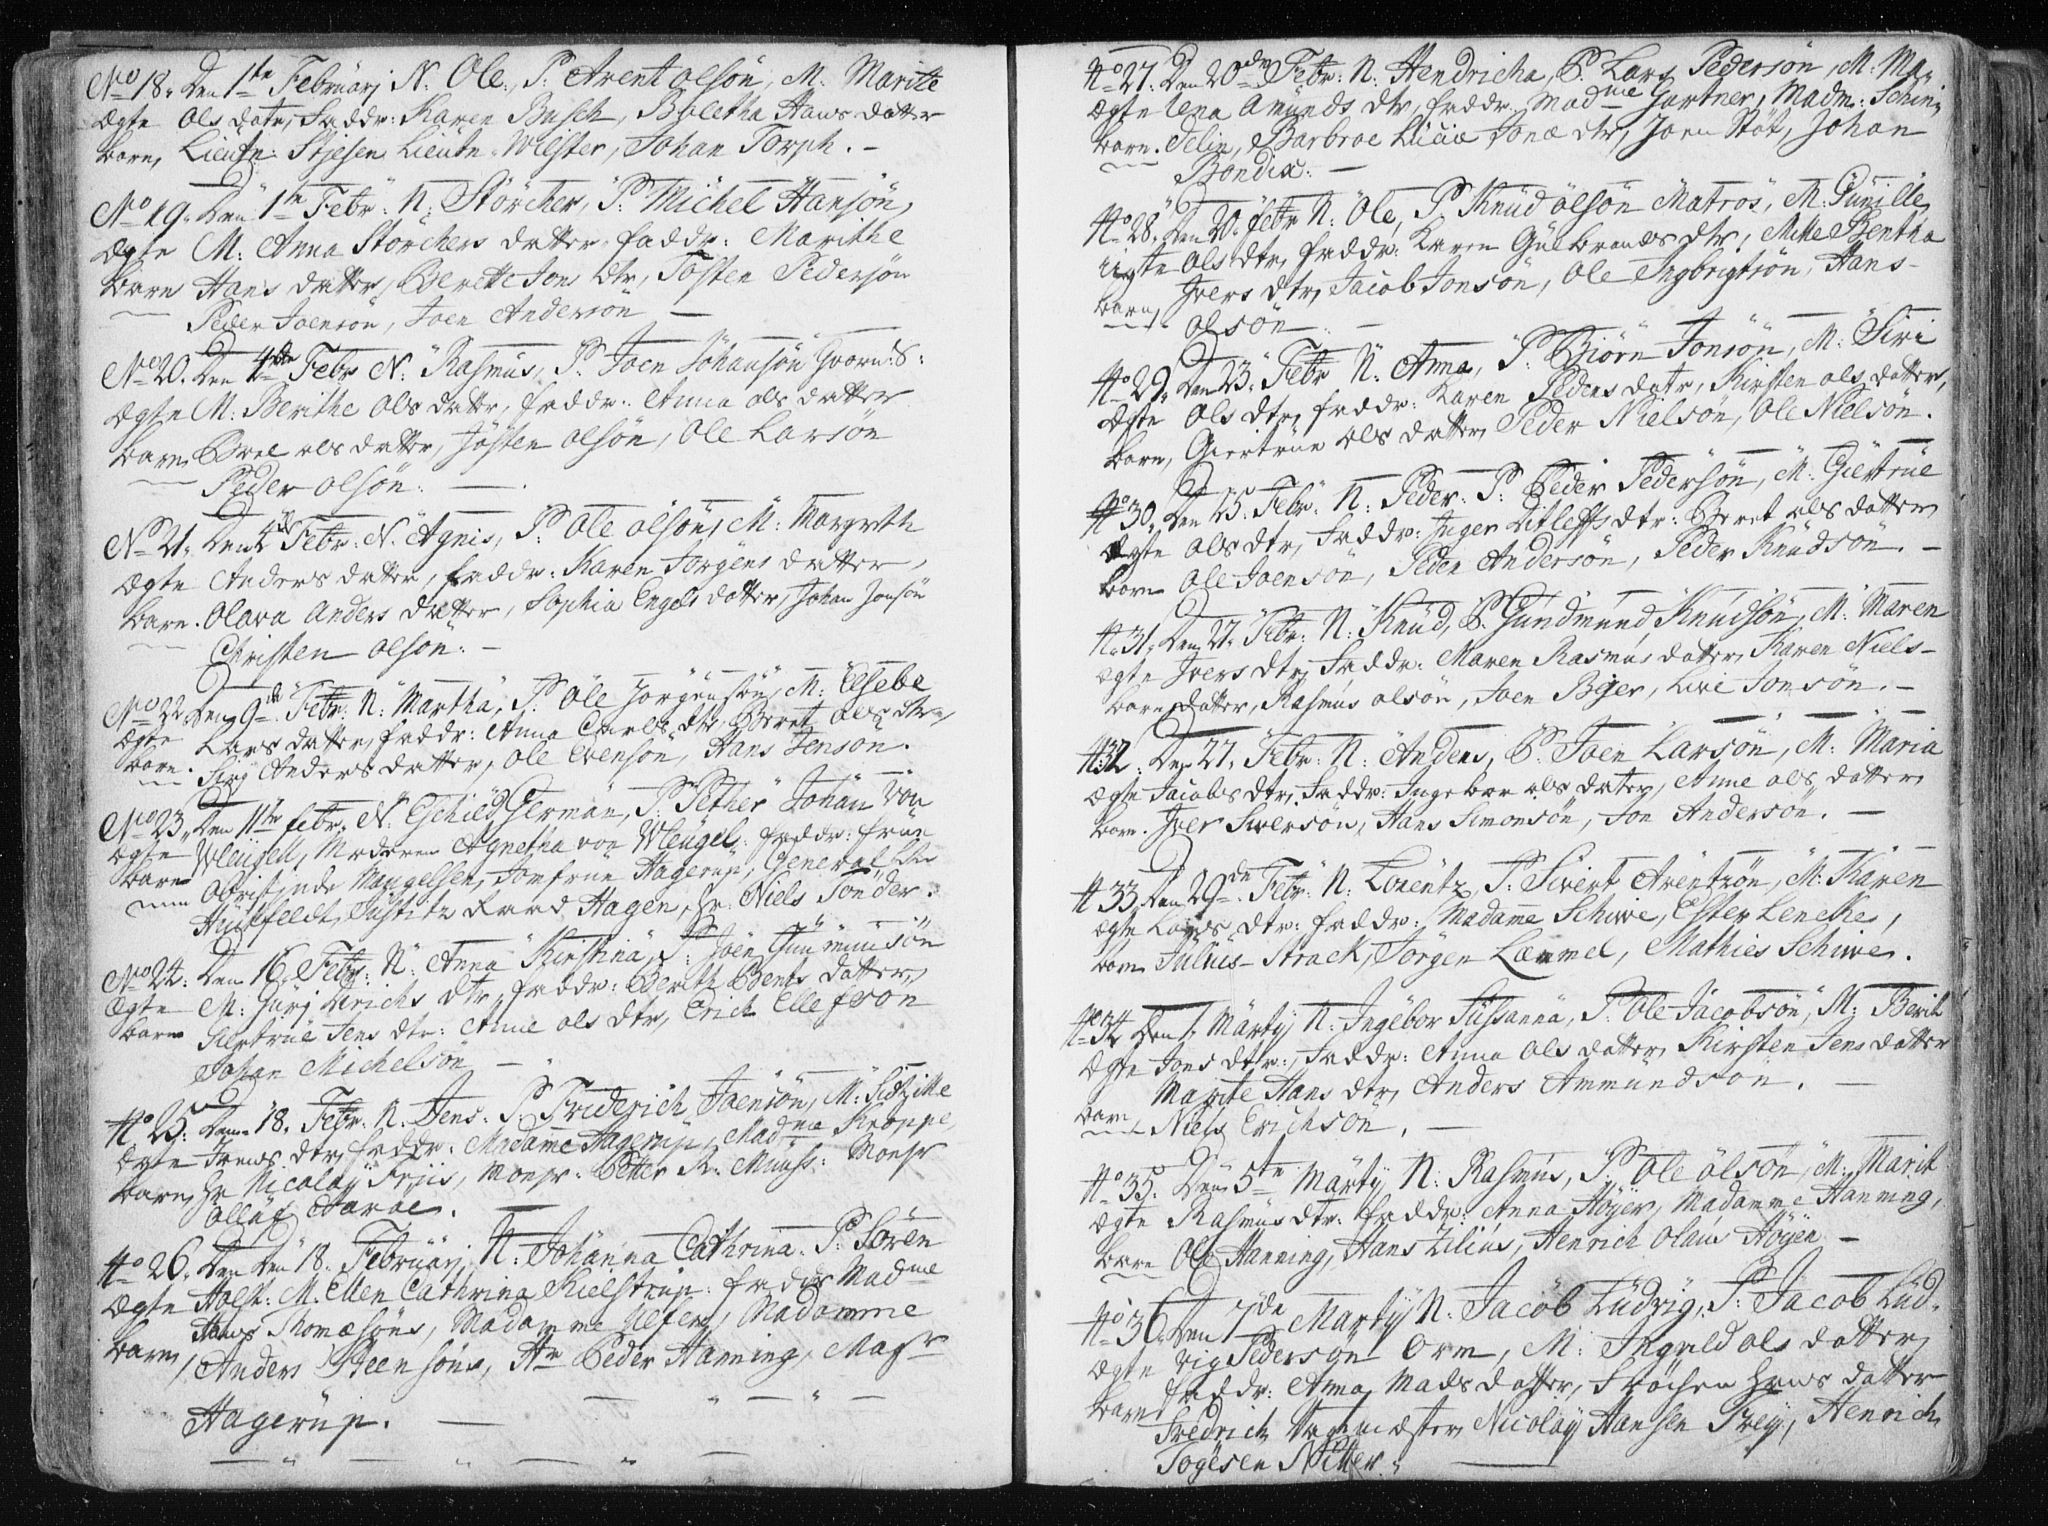 No 18. Den 1te Februarj N. Ole, P. Arent olsön, M. Marite
ægte Ols datr, Faddr: Karen Busch, Boletha Hans datter
barn, Lieutn: Stjesen Lieutn. Wiester, Johan Torph. –
No 19. Den 1te Febr. N: Störcher, P: Michel Hansön,
ægte M: Anna Störchers datter, faddr: Marithe
barn Hans datter, Berette Jons dtr, Tosten Pedersön
Peder Joensön, Joen Andersön –
No 20. Den 4de Febr N: Rasmus, P. Joen Johansön Gvorn: S:
ægte M: Berithe Ols datter, faddr: Anna ols datter
barn Broe ols datter, Jösten olsön, Ole Larsön
Peder olsön: –
No 21. Den 4de Febr: N. Agnis, P. Ole olsön, M: Margreth
ægte Anders datter, faddr: Karen Jorgens datter,
barn. Olava Anders datter, Sophia Engels datter, Johan Jonsön
Christen olsön: –
No 22 Den 9de Febr: N: Martha, P. Ole Jorgensön, M: Elsebe
ægte Lars datter, faddr: Anna Carls dtr Beret ols dtr,
barn. Siri Anders datter, Ole Evensön, Hans Jensön.
No 23. Den 11te febr. N. Eschild German, P. Pether Johan von
ægte Wleügell, Moderen Agnetha von Wleugel: faddr: frue
barn Obristinde Mangelsen, Jomfrue Hagerup, General
Huitfeldt, Justitz Raad Hagen, Hr: Niels Tönder.
No 24. Den 16. Febr: N: Anna Kirstina, P: Joen Gummunsön
ægte M: Guri Ulrichs dtr, faddr: Berith Bents datter,
barn Giertrue Jens dtr: Anne ols dtr, Erich Ellefsön
Johan Michelsön –
No 25. Den 18. Febr. N. Jens. P. Friderich Joensön, M: Sidzille
ægte Jrens dtr, faddr: Madame Hagerup, Madme Kroppe,
barn, Hr Nicolay Friis, Monsr: Petter R. Muus: Monsr
Olluf Harae. –
No 26. Den 18. Februarj N: Johanna Cathrina. P: Sören
ægte Holst: M. Ellen Cathrina Kielstrup: fadr Madme
Hans Thomæsöns, Madamme Ulfers, Madamme
barn, Anders Steensöns, Hr Peder Hanning, Magr
Hagerup. –
No 27. Den 20de Febr: N: Hendricha, P. Lars Pedersön, M: Ma-
ægte lena Amunds dtr, faddr: Madme Gartner, Madm: Schin-
barn. Telin, Barbroe Licia Jonæ dtr, Joen Stöt, Johan
Bondix: –
No 28. Den 20. febr N: Ole, P Knud olsön Matros, M. Gunille
ægte Ols dtr, faddr: Karen Gulbrands dtr, Mitte Bentha
barn, Jvers dtr, Jacob Jonsön, Ole Ingbrigtsön, Hans-
olsön. –
No 29. Den 23. Febr N: Anna, P: Biörn Jonsön, M: Siri
ægte Ols dtr, faddr: Karen Peders datr, Kirsten ols datter,
barn, Giertrue ols datter, Peder Nielsön, Ole Nielsön.
No 30. Den 25. Febr: N: Peder: P: Peder Pedersön, M: Giertrue
ægte Ols dtr, Faddr: Inger Ditleffs dtr: Beret ols datter
barn Ole Joensön, Peder Andersön, Peder Knudsön. –
No 31. Den 27. Febr: N: Knud, P. Gundmund Knudsön, M: Maren
ægte Jvers dtr, Faddr: Maren Rasmus datter, Karen Niels-
barn, datter, Rasmus olsön, Joen Bejer, Live Jonsön. –
N: 32. Den 27. Febr: N: Anders, P. Joen Larsön, M: Maria
ægte Jacobs dtr, Faddr: Ingebor ols datter, Anne ols datter
barn. Jver Siversön, Hans Simonsön, Jon Andersön. –
N 33. Den 29de Febr: N: Lorentz, P: Sivert Arentzön, M: Karen
ægte Lars dtr: faddr: Madame Schive, Ester Lencke,
barn Julius Strack, Jörgen Læmmel, Mathies Schive.
No 34 Den 1. Martij N: Ingebor Sussanna, P: Ole Jacobsön, M: Berit
ægte Jons dtr: Faddr: Anna Ols datter, Kirsten Jens datter
Marite Hans dtr, Anders Ammundsön. –
barn Niels Erichsön. –
No 35. Den 5te Martij N: Rasmus, P. Ole olsön, M: Marit
ægte Rasmus dtr: faddr: Anna Höyer, Madamme Hanning,
barn Ole Hanning, Hans Zilius, Henrich Olaus Höyer –
No 36. Den 7de Martij N: Jacob Ludvig, P. Jacob Lud-
ægte vig Pedersön Orm, M: Ingveld ols datter,
faddr: Anna Mads datter, Hans datter
barn, Fredrich Vagmæster, Nicolay Hansen Frey, Henrich
Togesen Nitter. –